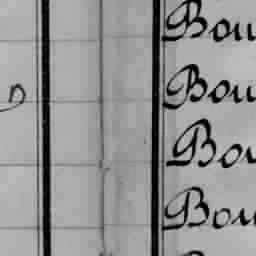 Bou
Bou
Bou
Bou